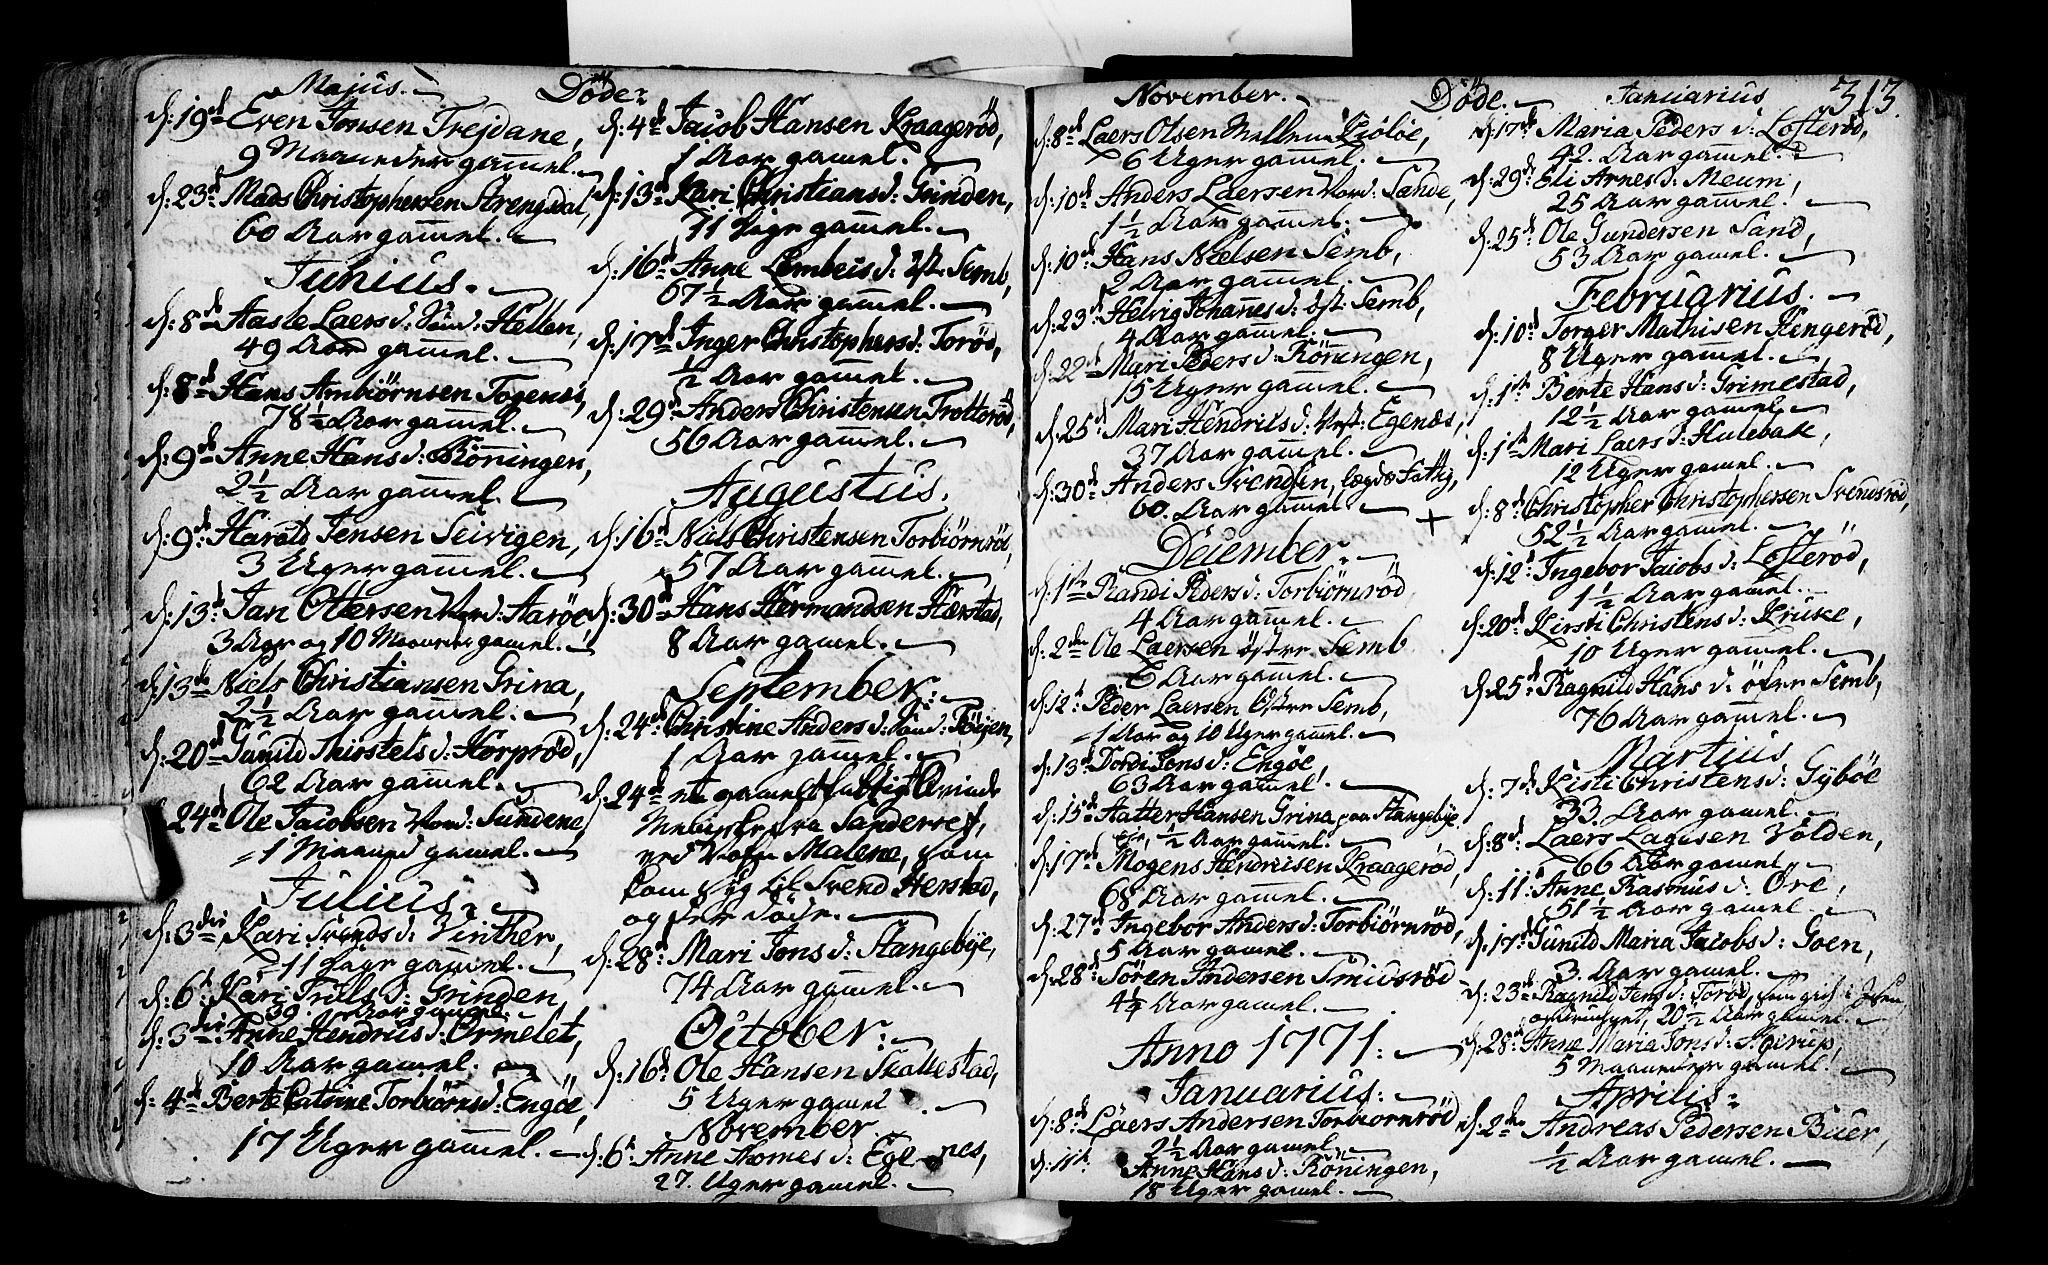 Majus.
Døde.
d: 19de Even Jonsen Trejdane,
9 Maaneder gam̄el.
d: 23de Mads Christophersen Strengsdal,
60 Aar gam̄el.
Junius.
d: 8de Aasle Laers d:
49 Aar gam̄el.
d: 8de Hans Ambiörnsen
78½ Aar gam̄el.
d: 9de Anne Hans d: Röningen,
2½ Aar gam̄el.
d: 9de Harald Jensen
3 Uger gam̄el.
d: 13de Jan Ottersen Nord: Aaröe
3 Aar og 10 Maaneder gam̄el.
d: 13de Niels Christiansen Grina,
2½ Aar gam̄el.
d: 20de Gunild Thorstels d: Horpröd,
62 Aar gam̄el.
24de Ole Jacobsen Nord: Sundene,
1 Maaned gam̄el.
Julius.
d: 3die Kari Svends d: Vinther,
11 Dage gam̄el.
d: 6te Kari Trulls d: Grinden,
39 Aar gam̄el.
d: 3die Anne Hendrics d: Ormelet,
10 Aar gam̄el.
d: 4de Berte Catrine Torbiörns d: Engöe,
17 Uger gam̄el.
d: 4de Jacob Hansen Kraageröd,
1 Aar gam̄el.
d: 13de Kari Christians d: Grinden,
11 Dage gam̄el.
d: 16de Anne Lembeis d: Öst: Semb,
67½ Aar gam̄el.
d: 17de Inger Christophers d: Toröd,
½ Aar gam̄el.
d: 29de Anders Christensen Trotteröd,
56 Aar gam̄el.
Augustus.
d: 16de Niels Christensen Torbiörnröd,
57 Aar gam̄el.
d: 30de Hans Hermandsen Hærstad,
8 Aar gam̄el.
September.
d: 24de Christine Anders d: Sönd: Föyen,
1 Aar gam̄el.
d: 24de et gam̄elt fattigt Qvinde
Menniske fra Sanderret,
ved Nafn Malene, som
kom syg til Svend Herstad,
og der döde.
d: 28de Mari Jons d: Stangebye,
74 Aar gam̄el.
October.
d: 16de Ole Hansen Skallestad,
5 Uger gam̄el.
November.
d: 6te Anne Thomes d: Egenes,
27. Uger gam̄el.
November.
Døde.
Januarius
313.
d: 8de Laers Olsen Mellem Kiölöe,
6 Uger gam̄el.
d: 10de Anders Laersen Nord: Sande,
1½ Aar gam̄el.
d: 10de Hans Nielsen Semb,
2 Aar gam̄el.
d: 23de Helvig Johannes d: Öst: Semb,
4 Aar gam̄el.
d: 22de Mari Peders d: Röningen,
15 Uger gam̄el.
d: 25de Mari Hendrics d: Vest: Egenæs,
37 Aar gam̄el.
d: 30de Anders Svendsen, lægds Fattig,
60. Aar gam̄el.
December.
d: 1ste Randi Peders d: Torbiörnröd
4 Aar gam̄el.
d: 2den Ole Laersen östre Semb
6 Aar gam̄el.
d: 12te Peder Laersen Östre Semb,
1 Aar og 10 Uger gam̄el.
d: 13de Dordi Jons d: Engöe,
63 Aar gam̄el.
d: 15de Hatter Hansen Grina paa Stangebye
½ Aar gam̄el.
d: 17de Mogens Hendricsen Kraageröd,
68 Aar gam̄el.
d: 27de Ingebor Anders d: Torbiörnröd,
5 Aar gam̄el.
d: 28de Sören Andersen Smidsröd
4½ Aar gam̄el.
Anno 1771.
Januarius.
d: 8de Laers Andersen Torbiörnröd
2½ Aar gam̄el.
d: 11te Anne Hans d: Röningen,
18 Uger gam̄el.
d: 17de Maria Peders d: Lofteröd,
42. Aar gam̄el.
d: 29de Eli Arnes d: Meum,
25 Aar gam̄el.
d: 25de Ole Gundersen Sand,
53 Aar gam̄el.
Februarius.
d: 10de Torger Mathisen Hengeröd,
8 Uger gam̄el.
d: 1ste Berte Hans d: Grimestad,
12½ Aar gam̄el.
d: 1ste Mari Laers d: Hulebak,
12 Uger gam̄el.
d: 8de Christopher Christophersen Svendsröd,
52½ Aar gam̄el.
d: 12te Ingebor Jacobs d: Lofteröd,
1½ Aar gam̄el.
d: 20de Kirsti Christens d: Kruke,
10 Uger gam̄el.
d: 25de Ragnild Hans d: öfre Semb,
76 Aar gam̄el.
Martius
d: 7de Kisti Christens d: Gyböe
33. Aar gam̄el.
d: 8de Laers Lagesen Volden,
66 Aar gam̄el.
d: 11te Anne Rasmus d: Ore,
51½ Aar gam̄el.
d: 17de Gunild Maria Jacobs d: Goen,
3. Aar gam̄el.
d: 23de Ragnild Jens d: Toröd, som gik i Isen,
20½ Aar gam̄el.
d: 28de Anne Maria Jons d: Agerup,
5 Maaneder gam̄el.
Aprilis.
d: 2den Andreas Pedersen Buer,
½ Aar gam̄el.